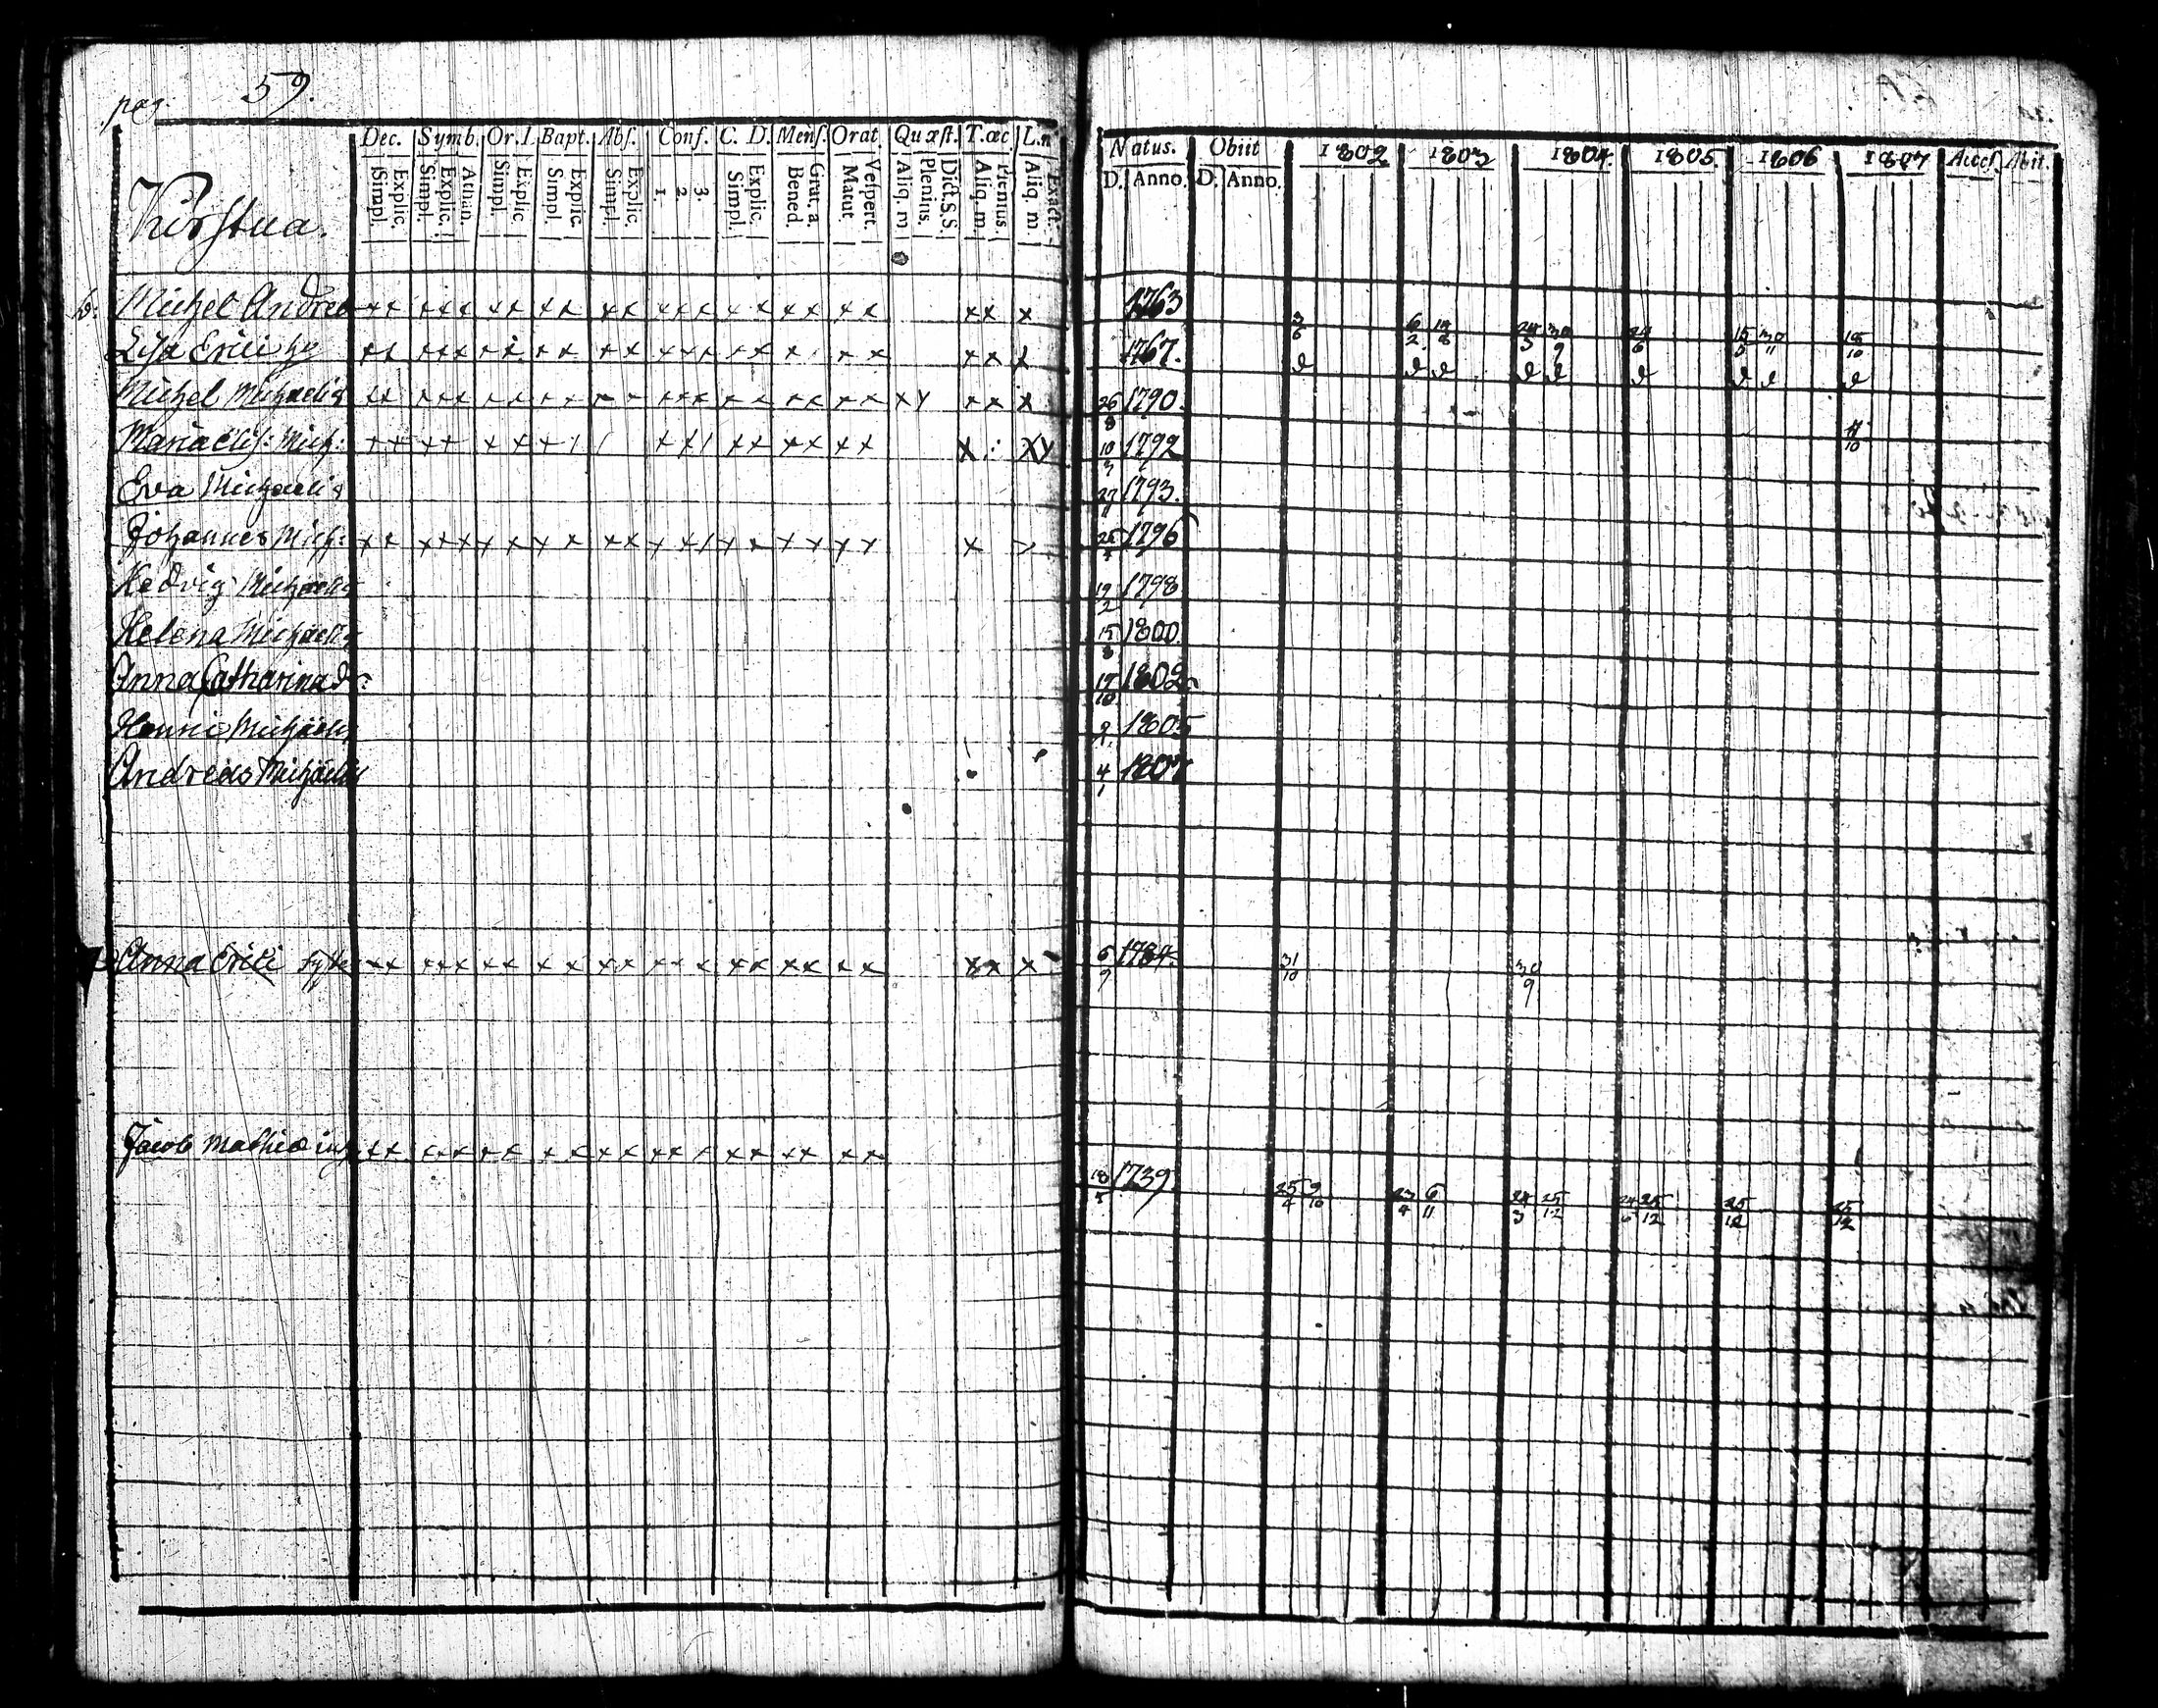 pag. 59.
Dec. Symb. Or. I. Bapt. Abs. Conf. C. D. Mens. Orat. Quæst. T. œc L. n
Simpl. Explic. Simpl. Explic. Athan. Simpl. Explic. Simpl. Explic. Simpl. Explic. 1. 2. 3. Simpl. Explic. Bened. Grat. a. Matut. Vespert. Aliq. m Plenius. Dict. S. S. Aliq. m. Plenius. Aliq. m Exact.
Natus. Obiit 1802 1803 1804. 1805. 1806 1807 Access. Abit.
D. Anno. D. Anno.
b. Michel Andreæ 1763
Lisa Erici hu 1767. 3/6 6/2 24/3 30/9 24/6 30/11 18/10
Michel Michaelis 26/8 1790.
Maria Elis: Mich: 10/3 1792
Eva Michaelis 27/11 1793.
Johannes Mich: 25 1796
Hedvig Michaelis 19/2 1798
Helena Michaelis 15/8 1800
Anna Catharina d:o 17/10 1802
Henric Michaelis 1805
Andreas Michaelis 4/1 1807
Anna Erici 6/9 1784. 31/10 30/9
Jacob Mathiæ inh. 18/5 1739 25/4 9/10 23/4 6/11 24/3 25/12 25/12 25/12 25/12